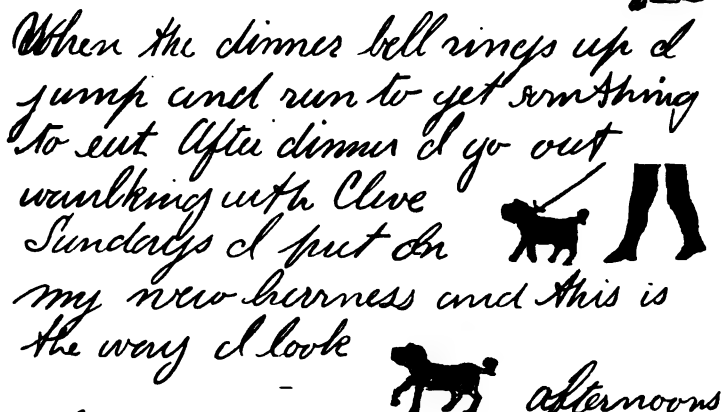 When the dinner bell rings up I
jump and run to get something
to eat After dinner I go out
waulking with Cleve
Sundays I put on
my new harness and this is
the way I look
afternoons